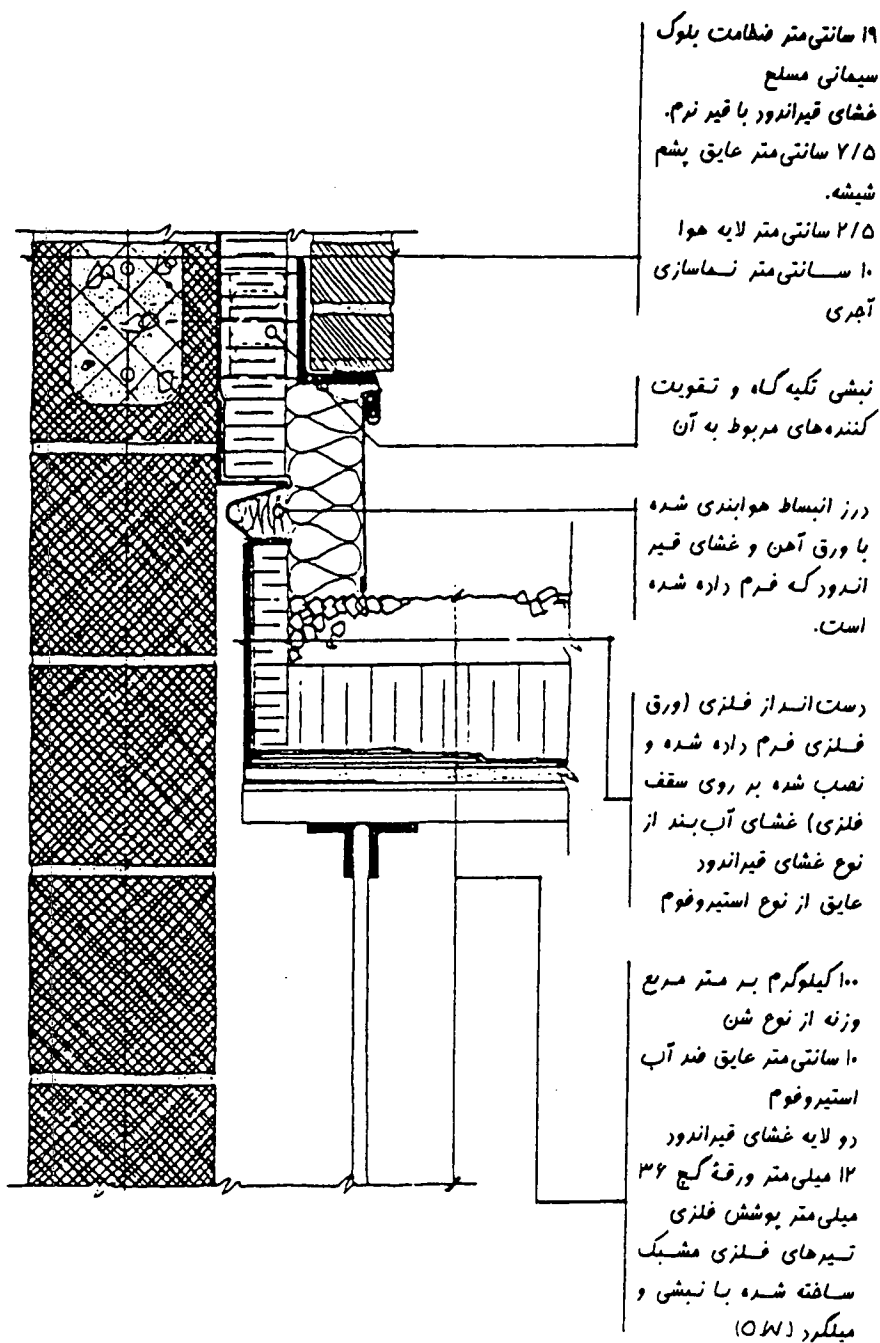 ۱۹ سانتی‌متر ضخامت بلوک
سیمانی مسلح
غشای قیراندور با قیر نرم.
۷/۵ سانتی‌متر عایق پشم
شیشه.
۲/۵ سانتی‌متر لایه هوا
۱۰ سانتی‌متر نماسازی
آجری
نبشی تکیه‌گاه و تقویت
کننده‌های مربوط به آن
درز انبساط هوابندی شده
با ورق آهن و غشای قیر
اندور که فرم داده شده
است.
دست‌انداز فلزی (ورق
فلزی فرم داده شده و
نصب شده بر روی سقف
فلزی) غشای آب‌بند از
نوع غشای قیراندور
عایق از نوع استیروفوم
۱۰۰ کیلوگرم بر متر مربع
وزنه از نوع شن
۱۰ سانتی‌متر عایق ضد آب
استیروفوم
دو لایه غشای قیراندور
۱۲ میلی‌متر ورقهٔ گچ ۳۶
میلی‌متر پوشش فلزی
تیرهای فلزی مشبک
ساخته شده با نبشی و
میلگرد (OWJ)